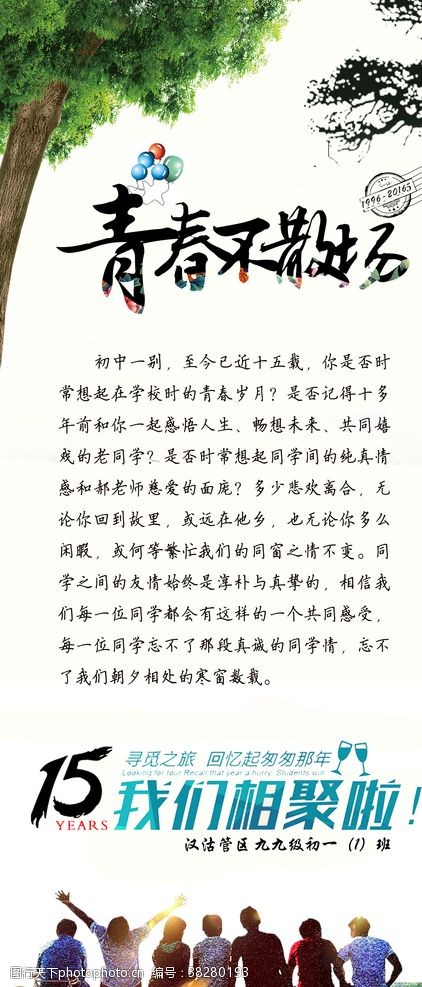 1996-2016S
青春不散场
初中一别，至今已近十五载，你是否时
常想起在学校时的青春岁月？是否记得十多
年前和你一起感悟人生、畅想未来、共同嬉
戏的老同学？是否时常想起同学间的纯真情
感和郝老师慈爱的面庞？多少悲欢离合，无
论你回到故里，或远在他乡，也无论你多么
闲暇，或何等繁忙我们的同窗之情不变。同
学之间的友情始终是淳朴与真挚的，相信我
们每一位同学都会有这样的一个共同感受，
每一位同学忘不了那段真诚的同学情，忘不
了我们朝夕相处的寒窗数载。
寻觅之旅 回忆起匆匆那年
Looking for tour Recall that year a hurry. Students will
15
YEARS
我们相聚啦！
汉沽管区九九级初一（1）班
图行天下photophoto.cn 编号：38280193